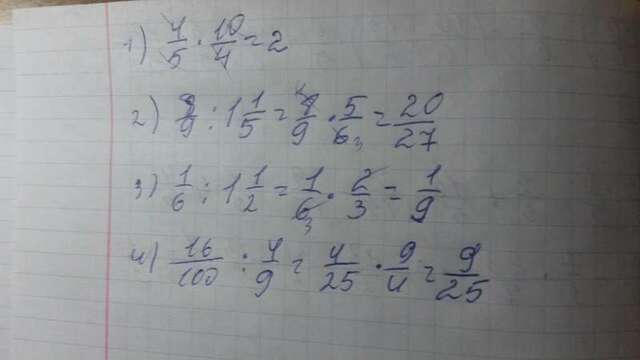 1) 4/5 · 10/4 = 2
2) 8/9 : 1 1/5 = 8/9 · 5/6 = 20/27
3) 1/6 : 1 1/2 = 1/6 · 2/3 = 1/9
4) 16/100 : 4/9 = 4/25 · 9/4 = 9/25